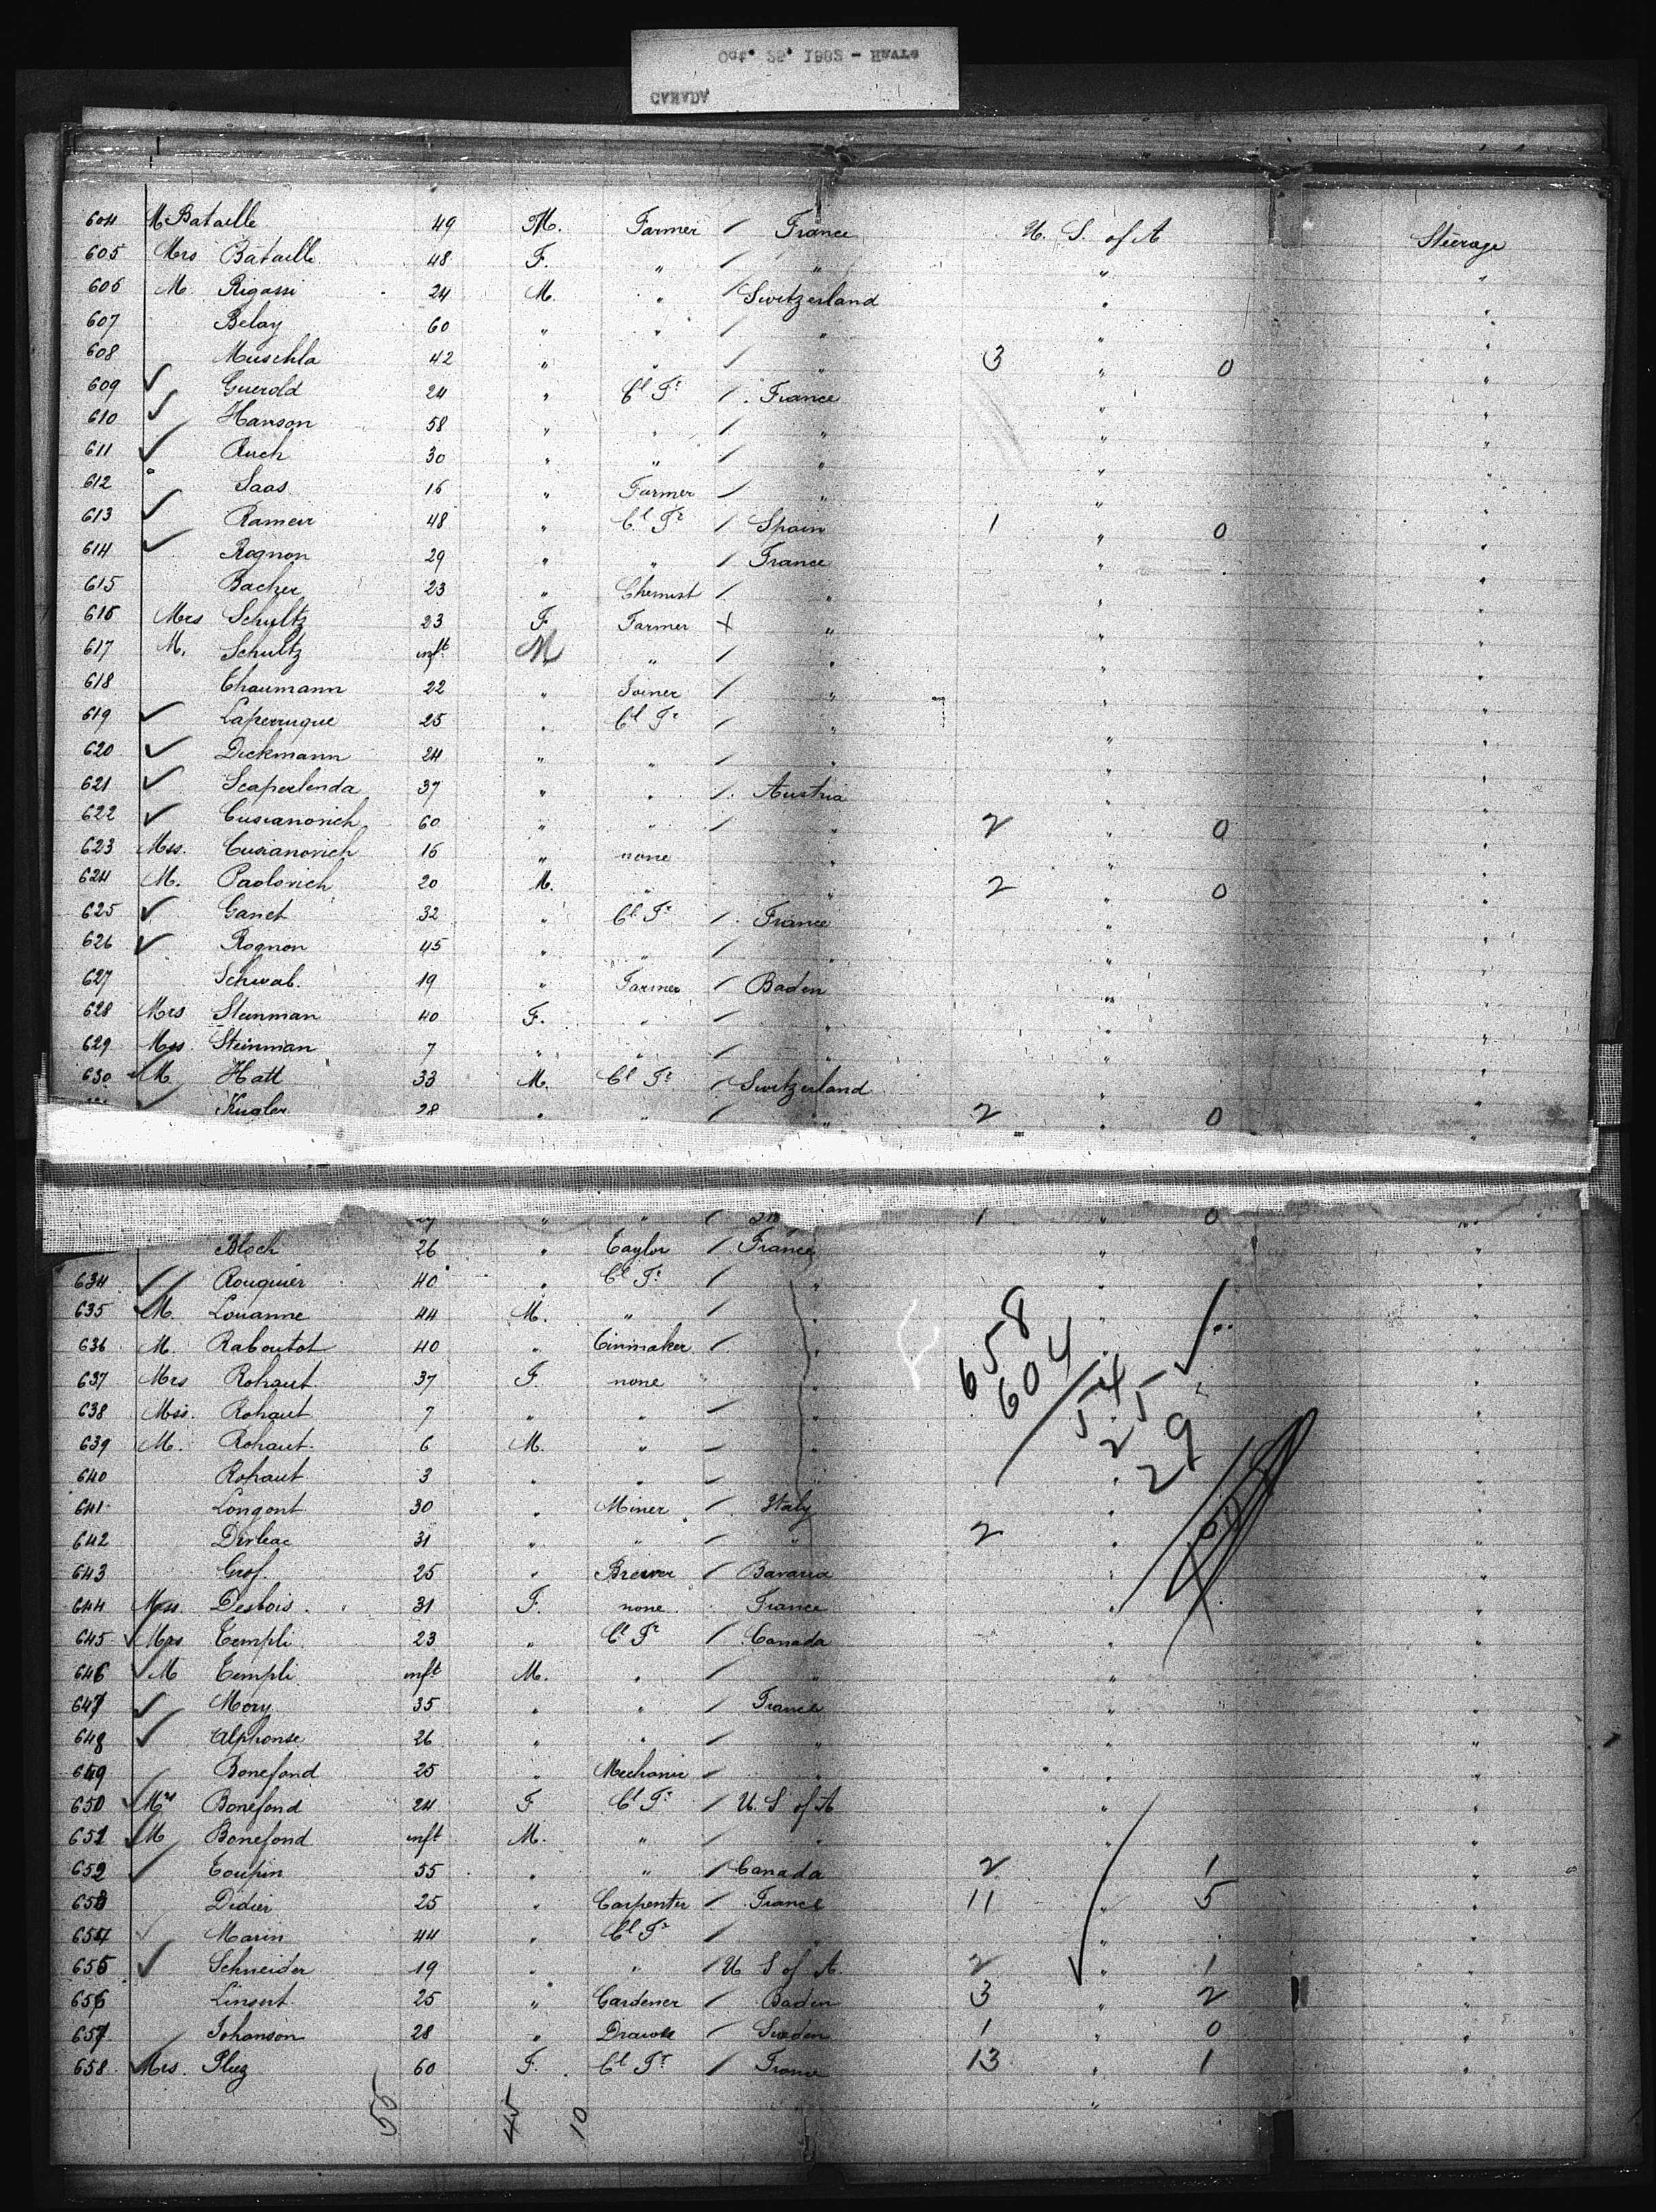 Oct. 25. 1882 - Havre
CANADA
604 M. Bataille 49 M. Farmer / France U. S. of A Steerage
605 Mrs Bataille 48 F. " / " " "
606 M. Rigassi 24 M. " / Switzerland " "
607 Belay 60 " " / " " "
608 Muschla 42 " " / " 3 " 0 "
609 ✓ Guerold 24 " Cl Fr / France " "
610 ✓ Hanson 58 " " / " " "
611 ✓ Ruch 30 " " / " " "
612 Saas 16 " Farmer / " " "
613 ✓ 48 " Cl Fr / Spain 1 " 0 "
614 ✓ Rognon 29 " " / France " "
615 Bacher 23 " Chemist / " " "
616 Mrs Schultz 23 F Farmer X " " "
617 M. Schultz inft M " / " " "
618 Chaumann 22 " Joiner / " " "
619 ✓ Laperruque 25 " Cl Fr / " " "
620 ✓ Dickmann 24 " " / " " "
621 ✓ Scaperlenda 37 " " / Austria " "
622 ✓ Cusianovich 60 " " / " 2 " 0 "
623 Mss. Cusianovich 16 " none " " "
624 M. Paolovich 20 M. " " 2 " 0 "
625 ✓ Ganet 32 " Cl Fr / France " "
626 ✓ Rognon 45 " " / " " "
627 Schwab. 19 " Farmer / Baden " "
628 Mrs Steinman 40 F. " / " " "
629 Mss. Steinman 7 " " / " " "
630 M. Hatt 33 M. Cl Fr / Switzerland " "
Kugler 28 " " / " 2 " 0 "
" " / 1 " 0 "
Bloch 26 " Taylor / France " "
634 ✓ Rouquier 40 " Cl Fr / " " "
635 M. Louanne 44 M. " / " " "
636 M. Raboutot 40 " Tinmaker / " " "
637 Mrs Rohaut 37 F. none " " "
638 Mss. Rohaut 7 " " / " " "
639 M. Rohaut 6 M. " / " " "
640 Rohaut 3 " " / " " "
641 Longont 30 " Miner / Italy " "
642 31 " " / " 2 " "
643 Grof. 25 " Brewer / Bavaria " "
644 Mss. Desbois 31 F. none France " "
645 ✓ Mrs Templi 23 " Cl Fr / Canada " "
646 ✓ M Templi inft M. " / " " "
647 ✓ Mory 35 " " / France " "
648 ✓ Alphonse 26 " " / " " "
649 Bonefond 25 " Mechanic / " " "
650 ✓ Mrs Bonefond 24 F Cl Fr / U. S of A " "
651 ✓ M Bonefond inft M. " / " " "
652 ✓ Toupin 55 " " / Canada 2 " 1 "
653 Didier 25 " Carpenter / France 11 " 5 "
654 ✓ Marin 44 " Cl Fr / " " "
655 ✓ Schneider 19 " " / U S of A. 2 " 1 "
656 Linsert 25 " Gardener / Baden 3 " 2 "
657 Johanson 28 " / Sweden 1 " 0 "
658 Mrs. Plez 60 F. Cl Fr / France 13 " 1 "
658
604
54
25
29
55 45 10